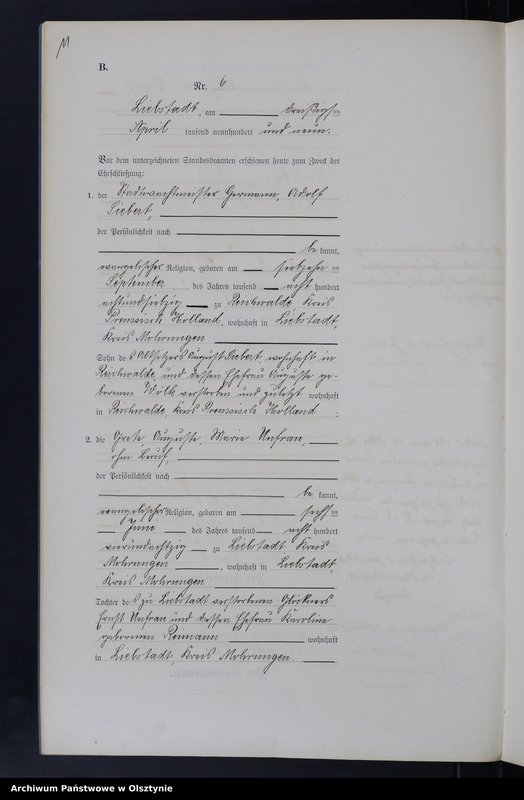 11
B.
Nr. 6
Liebstadt, am dreißigsten
April tausend neunhundert und neun.
Vor dem unterzeichneten Standesbeamten erschienen heute zum Zweck der
Eheschließung:
1. der Stadtwachtmeister Hermann, Adolf
Siebert,
der Persönlichkeit nach
be kannt,
evangelischer Religion, geboren am siebzehn ten
September des Jahres tausend acht hundert
achtundsiebzig zu Reichwalde Kreis
Preussisch Holland, wohnhaft in Liebstadt,
Kreis Mohrungen
Sohn des Altsitzers August Siebert wohnhaft in
Reichwalde und dessen Ehefrau Auguste ge-
borenen Wölk verstorben und zuletzt wohnhaft
in Reichwalde Kreis Preussisch Holland ;
2. die Grete, Auguste, Marie Unfrau,
ohne Beruf,
der Persönlichkeit nach
be kannt,
evangelischer Religion, geboren am sechs ten
Juni des Jahres tausend acht hundert
vierundachtzig zu Liebstadt Kreis
Mohrungen, wohnhaft in Liebstadt,
Kreis Mohrungen
Tochter des zu Liebstadt verstorbenen Glöckners
Ernst Unfrau und dessen Ehefrau Karoline
geborenen wohnhaft
in Liebstadt, Kreis Mohrungen
Archiwum Państwowe w Olsztynie